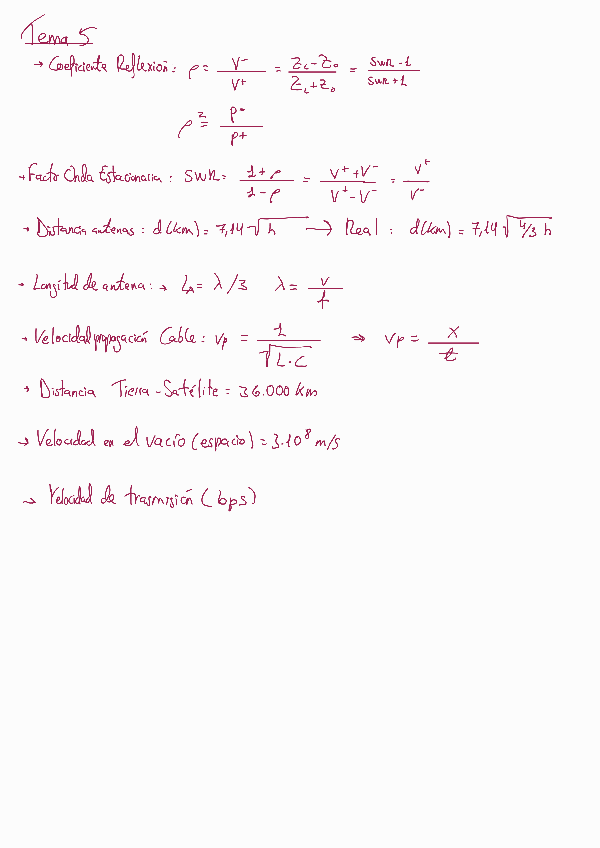 Tema 5
→ Coeficiente Reflexión: ρ = V⁻/V⁺ = (Z_L - Z_0)/(Z_L + Z_0) = (SWR - 1)/(SWR + 1)
ρ² = P⁻/P⁺
→ Factor Onda Estacionaria: SWR = (1 + ρ)/(1 - ρ) = (V⁺ + V⁻)/(V⁺ - V⁻) = V⁺/V⁻
→ Distancia antenas: d(km) = 7,14 √h → Real: d(km) = 7,14 √(4/3 h)
→ Longitud de antena: → L_A = λ/3 λ = v/f
→ Velocidad propagación Cable: vp = 1/√(L·C) ⇒ vp = x/t
→ Distancia Tierra-Satélite = 36.000 km
→ Velocidad en el vacío (espacio) = 3·10⁸ m/s
→ Velocidad de trasmisión (bps)